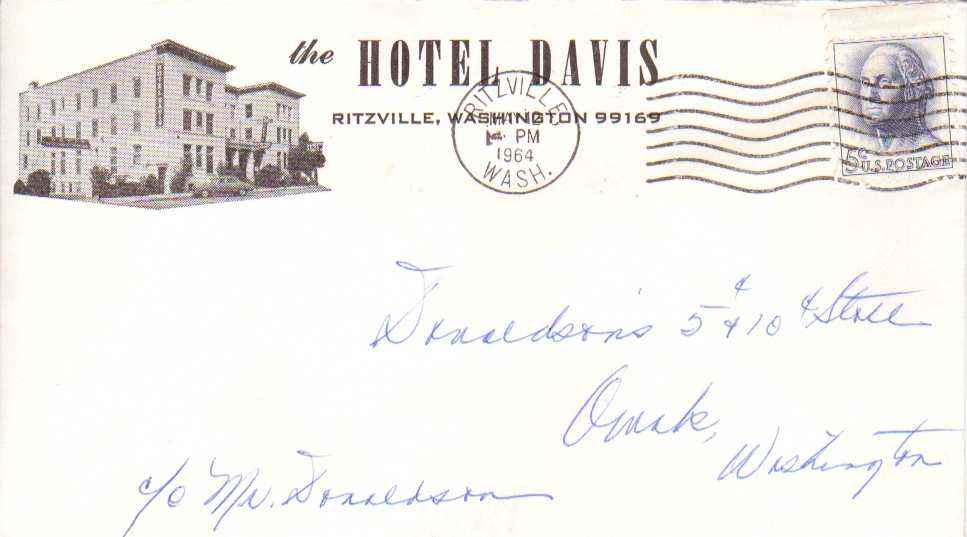 the HOTEL DAVIS
RITZVILLE, WASHINGTON 99169
RITZVILLE
PM
1964
WASH.
5c U.S.POSTAGE
Donaldson's 5¢ & 10¢ Store
Omak,
Washington
c/o Mr. Donaldson